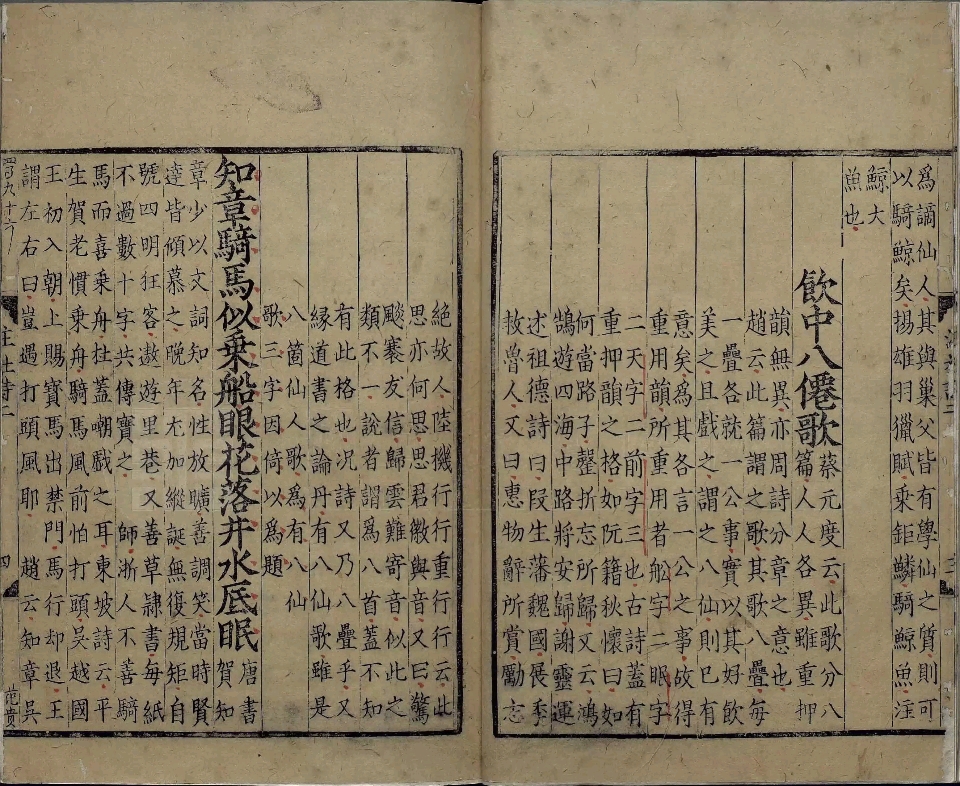 爲謫仙人其與巢父皆有學仙之質則可
以騎鯨矣揚雄羽獵賦乘鉅鱗騎鯨魚注
鯨大
魚也
飲中八僊歌
蔡元度云此歌分八
篇人人各異雖重押
韻無異亦周詩分章之意也
趙云此篇謂之歌其歌八疊每
一疊各就一公事實以其好飲
美之且戲之謂之八仙則已有
意矣爲其各言一公之事故得
重用韻所重用者船字二眠字
二天字二前字三也古詩蓋有
重押韻之格如阮籍秋懷曰如
何當路子磬折忘所歸又云鴻
鵠遊四海中路將安歸謝靈運
述祖德詩曰段生藩魏國展季
救魯人又曰惠物辭所賞勵志
絶故人陸機行行重行行云此
思亦何思思君徽與音又曰驚
飈褰友信歸雲難寄音似此之
類不一說者謂爲八首蓋不知
有此格也况詩又乃八疊乎又
緣道書之論丹有八仙歌雖是
八箇仙人歌爲有八仙
歌三字因倚以爲題
知章騎馬似乘船眼花落井水底眠
唐書
賀知
章少以文詞知名性放曠善調笑當時賢
達皆傾慕之晚年尤加縱誕無復規矩自
號四明狂客遨遊里巷又善草隷書每紙
不過數十字共傳寶之 師浙人不善騎
馬而喜乘舟在蓋嘲戲之耳東坡詩云平
生賀老慣乘舟騎馬風前怕打頭吳越國
王初入朝上賜寶馬出禁門馬行却退王
謂左右曰豈遇打頭風耶 趙云知章吳
杜詩二
四